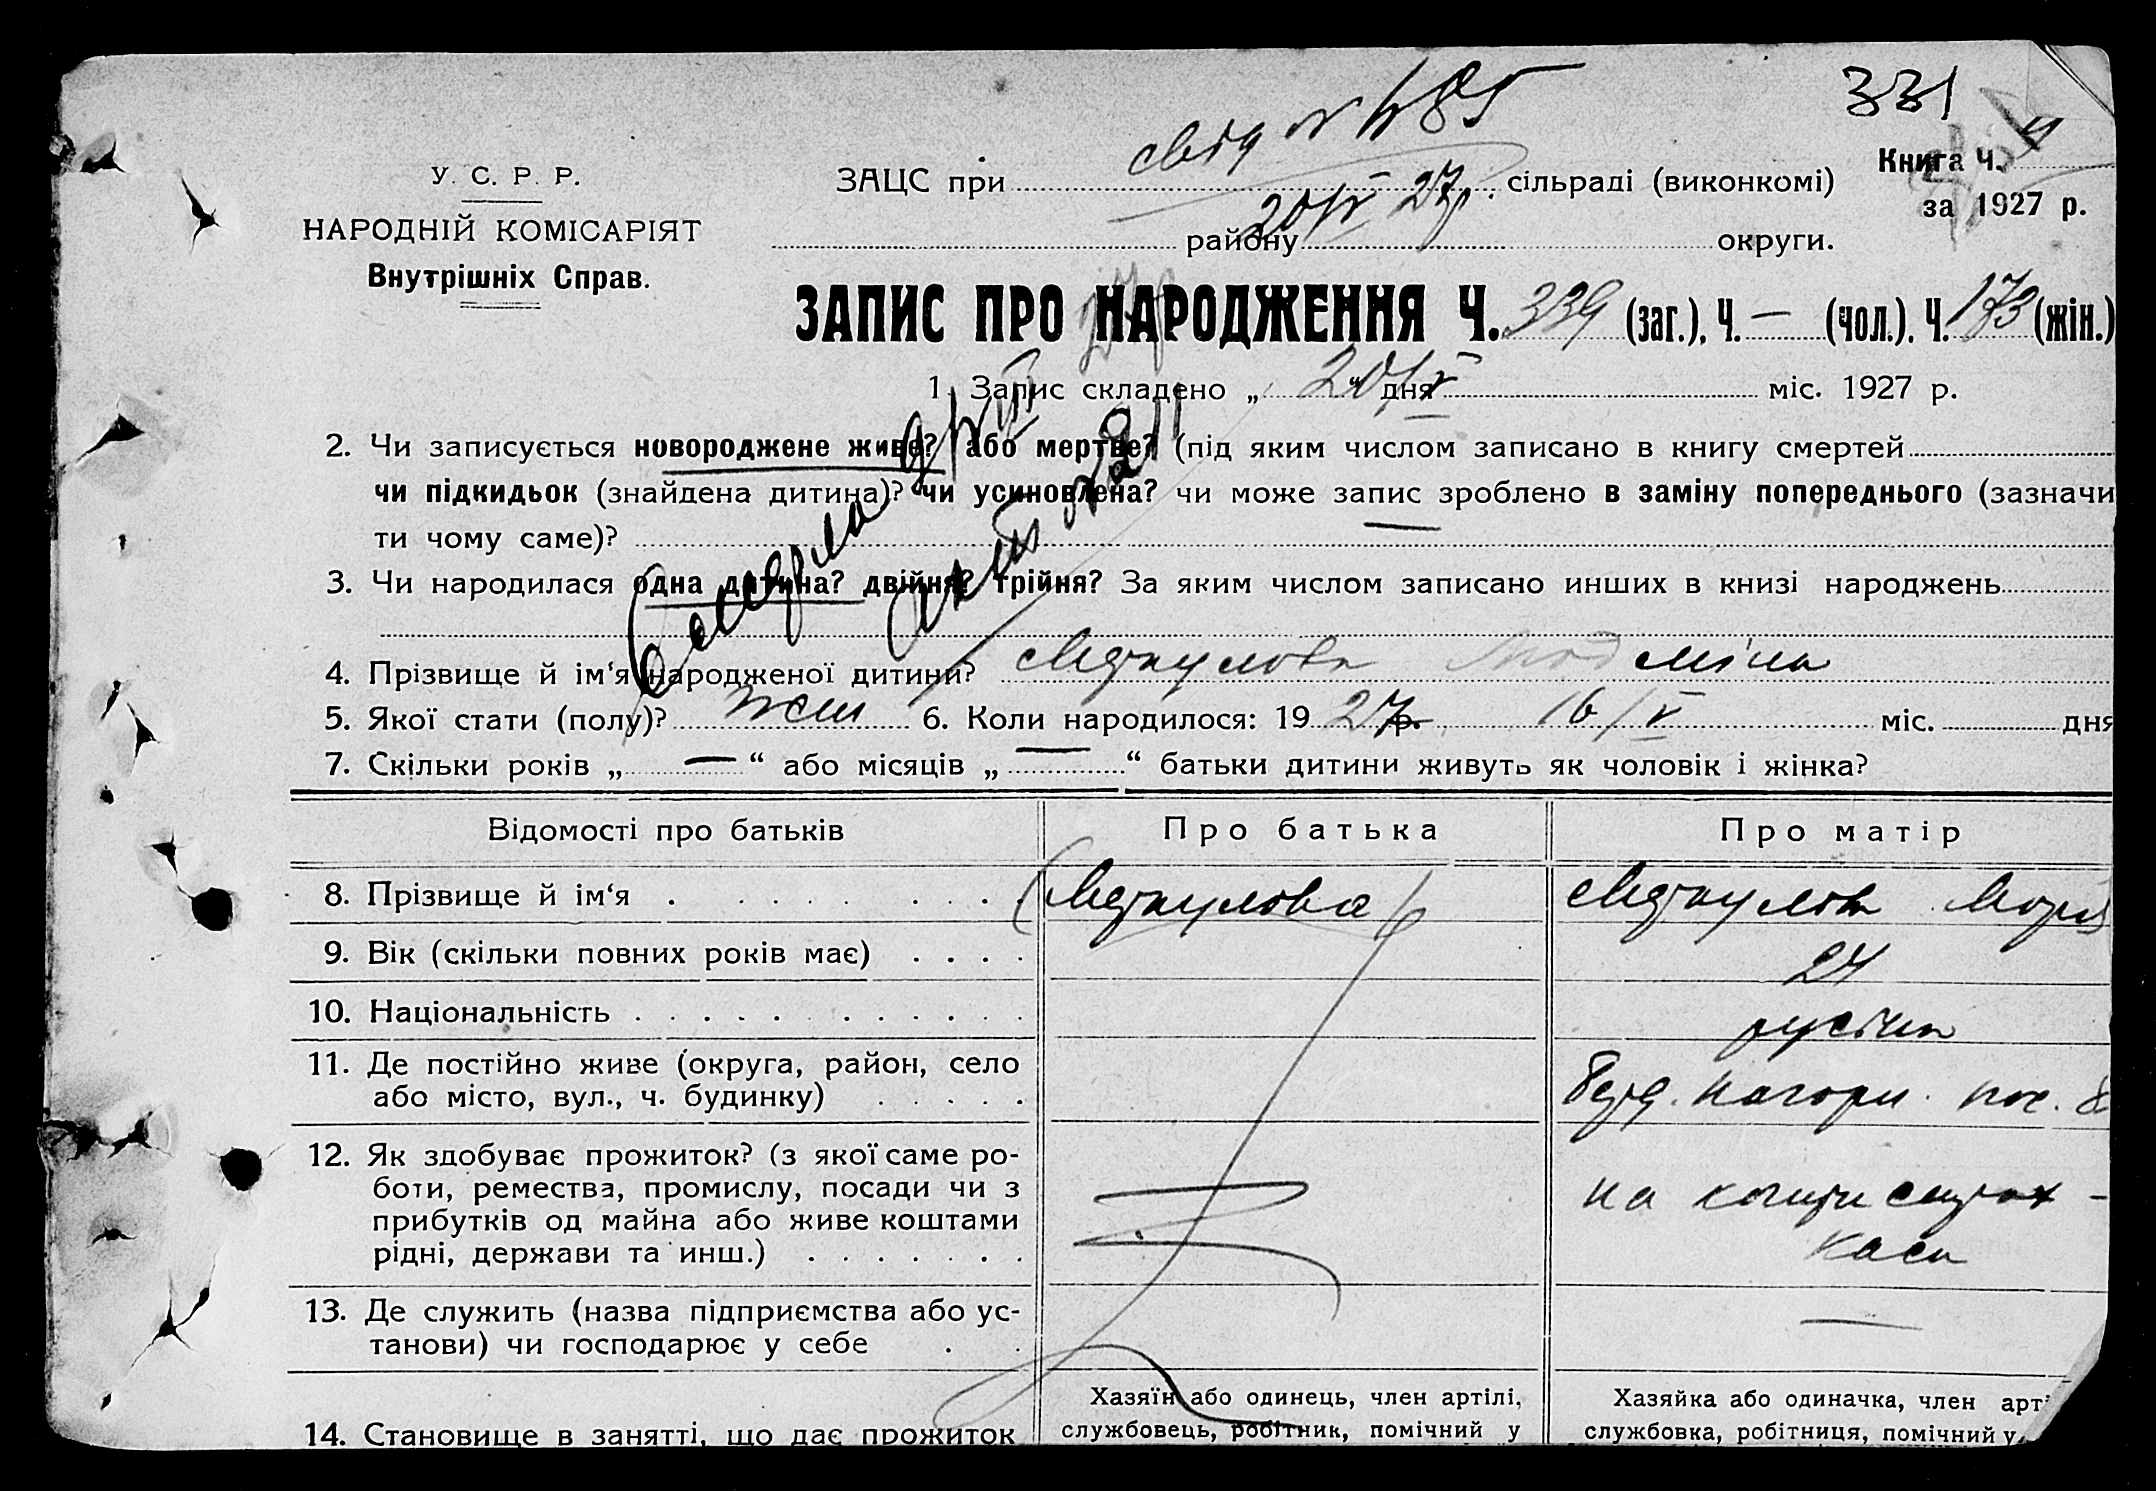 331
свід N 485
У. С. Р. Р.
ЗАЦС при сільраді (виконкомі)
Книга Ч.
20/IV 27р.
за 1927 р.
НАРОДНІЙ КОМІСАРІЯТ
району округи.
Внутрішніх Справ.
ЗАПИС ПРО НАРОДЖЕННЯ Ч. 339 (заг.), Ч. — (чол.), Ч. 173 (жін.)
1. Запис складено „ 20/V “ дня міс. 1927 р.
2. Чи записується новороджене живе? або мертве? (під яким числом записано в книгу смертей
чи підкидьок (знайдена дитина)? чи усиновлена? чи може запис зроблено в заміну попереднього (зазначи
ти чому саме)? —
3. Чи народилася одна дитина? двійня? трійня? За яким числом записано инших в книзі народжень
4. Прізвище й ім‘я народженої дитини?
5. Якої стати (полу)? жін 6. Коли народилося: 19 27 р. 16/V міс. дня
7. Скільки років „ — “ або місяців „ — “ батьки дитини живуть як чоловік і жінка?
Відомості про батьків Про батька Про матір
8. Прізвище й ім‘я
9. Вік (скільки повних років має) 24
10. Національність
11. Де постійно живе (округа, район, село
або місто, вул., ч. будинку)
12. Як здобуває прожиток? (з якої саме ро-
боти, ремества, промислу, посади чи з
на кошти страх-
прибутків од майна або живе коштами
рідні, держави та инш.) каси
13. Де служить (назва підприємства або ус-
танови) чи господарює у себе —
Хазяїн або одинець, член артілі, Хазяйка або одиначка, член арт
14. Становище в занятті, що дає прожиток службовець, робітник, помічний у службовка, робітниця, помічний у